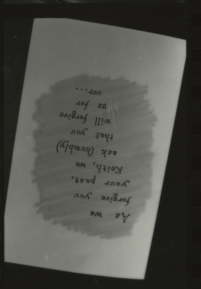 As we
forgive you
your past,
Keith, we
ask (humbly)
that you
will forgive
us for
our...